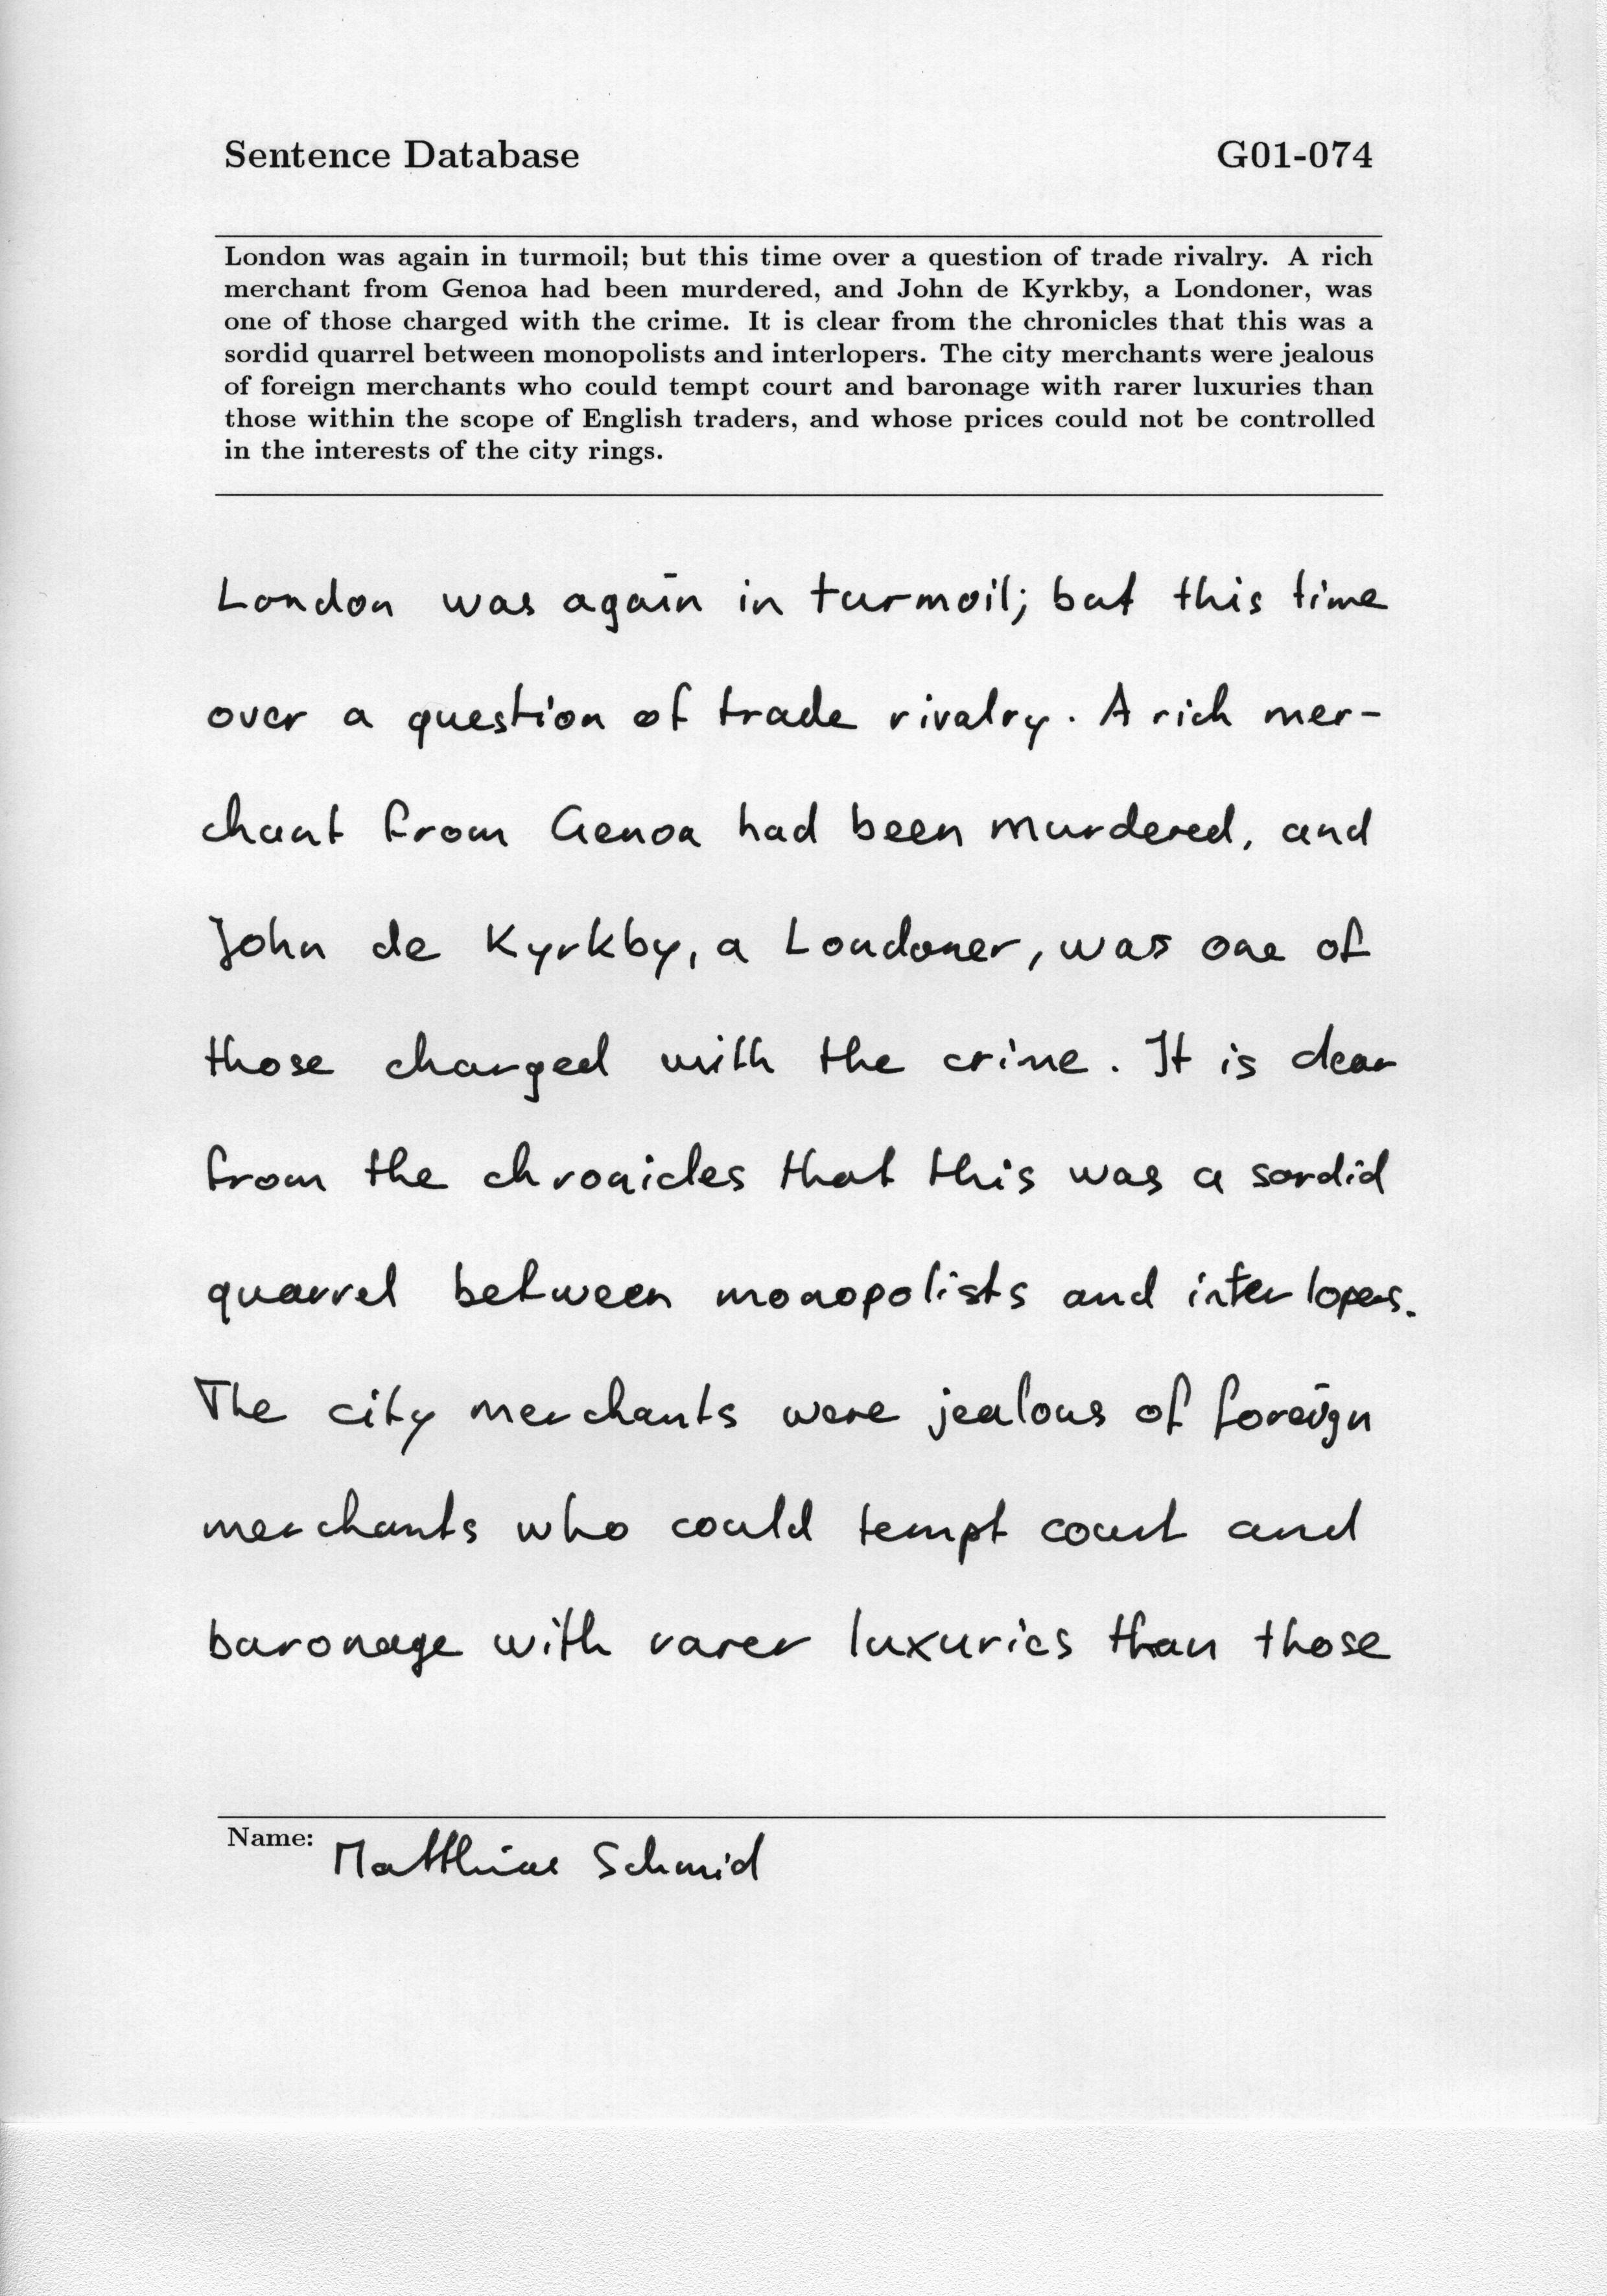 Sentence Database G01-074
London was again in turmoil; but this time over a question of trade rivalry. A rich
merchant from Genoa had been murdered, and John de Kyrkby, a Londoner, was
one of those charged with the crime. It is clear from the chronicles that this was a
sordid quarrel between monopolists and interlopers. The city merchants were jealous
of foreign merchants who could tempt court and baronage with rarer luxuries than
those within the scope of English traders, and whose prices could not be controlled
in the interests of the city rings.
London was again in turmoil; but this time
over a question of trade rivalry. A rich mer-
chant from Genoa had been murdered, and
John de Kyrkby, a Londoner, was one of
those charged with the crime. It is clear
from the chronicles that this was a sordid
quarrel between monopolists and interlopers.
The city merchants were jealous of foreign
merchants who could tempt court and
baronage with rarer luxuries than those
Name: Matthias Schmid